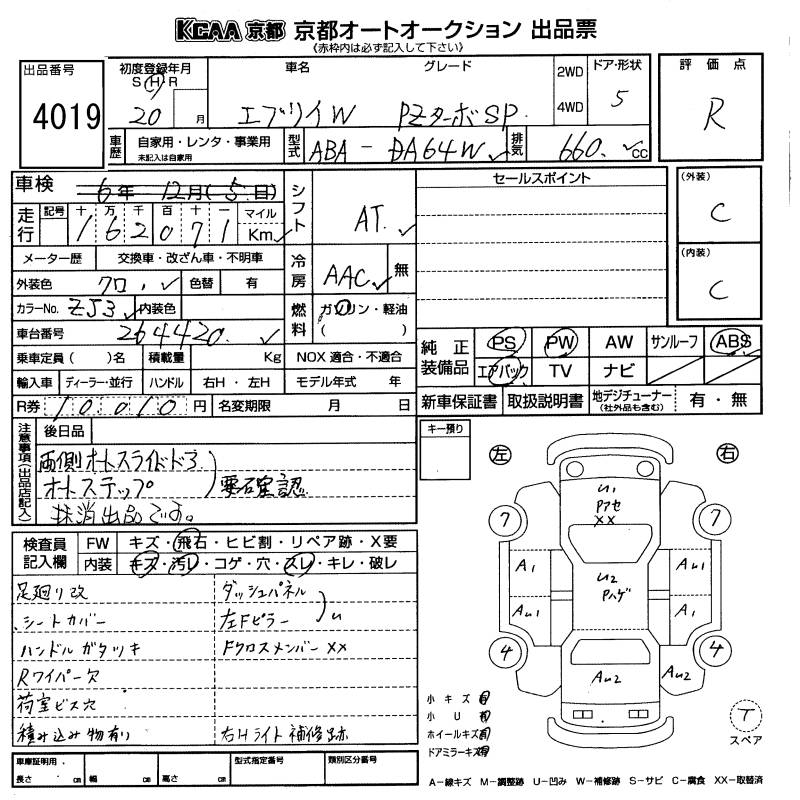 KCAA 京都 京都オートオークション 出品票
《赤枠内は必ず記入して下さい》
出品番号 4019
初度登録年月 S H R 20 月
車名 エブリイW
グレード PZターボSP
2WD 4WD
ドア・形状 5
評価点 R
車歴 自家用・レンタ・事業用 未記入は自家用
型式 ABA-DA64W
排気 660. cc
車検 6年 12月(5日)
シフト AT
セールスポイント
(外装) C
走行 記号 十 万 千 百 十 一 マイル Km
162071
メーター歴 交換車・改ざん車・不明車
冷房 AAC 無
(内装) C
外装色 クロ 色替 有
カラーNo. ZJ3 内装色
燃料 ガソリン・軽油 ( )
車台番号 264420
純正装備品 PS PW AW サンルーフ ABS
エアバック TV ナビ
乗車定員( )名 積載量 Kg NOX適合・不適合
輸入車 ディーラー・並行 ハンドル 右H・左H モデル年式 年
R券 10,010円 名変期限 月 日
新車保証書 取扱説明書 地デジチューナー(社外品も含む) 有・無
注意事項(出品店記入) 後日品
両側オートスライドドア
オートステップ 要確認
抹消出品です。
キー預り
左 右
検査員記入欄 FW キズ・飛石・ヒビ割・リペア跡・X要
内装 キズ・汚レ・コゲ・穴・スレ・キレ・破レ
足廻り改
シートカバー
ハンドルガタツキ
Rワイパー欠
荷室ビス穴
積み込み物有り
ダッシュパネル
左Fピラー U
Fクロスメンバー XX
右Hライト補修跡
U1
Pアセ
XX
7 7
A1 AU1
U2
Pハゲ
AU1 A1
4 4
AU2 AU2
小キズ有
小U有
ホイールキズ有
ドアミラーキズ有
T
スペア
車庫証明用 長さ cm 幅 cm 高さ cm 型式指定番号 類別区分番号
A-線キズ M-調整跡 U-凹み W-補修跡 S-サビ C-腐食 XX-取替済